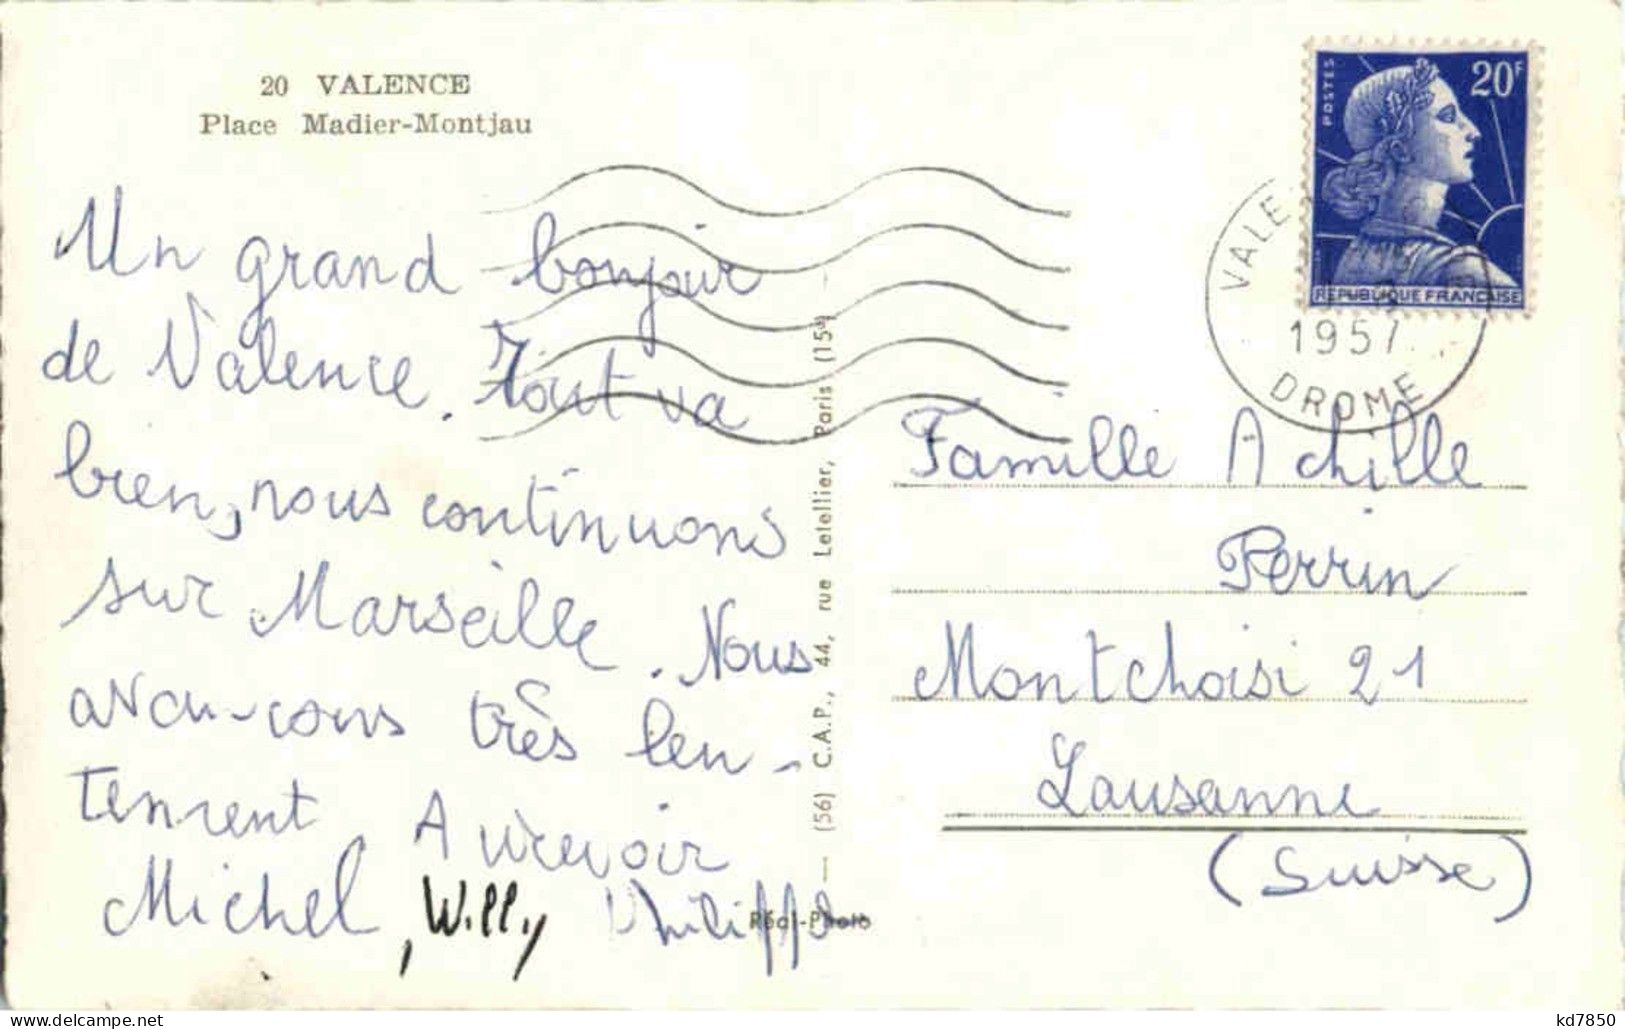 20 VALENCE
Place Madier-Montjau
Un grand bonjour
de Valence. Tout va
bien, nous continuons
sur Marseille. Nous
avan-cons très len-
tement Aurevoir
Michel, Willy Philippe
(56) C.A.P., 44, rue Letellier, Paris (15e)
Réal-Photo
POSTES
20F
REPUBLIQUE FRANÇAISE
VALE
1957
DROME
Famille Achille
Perrin
Montchoisi 21
Lausanne
(Suisse)
kd7850